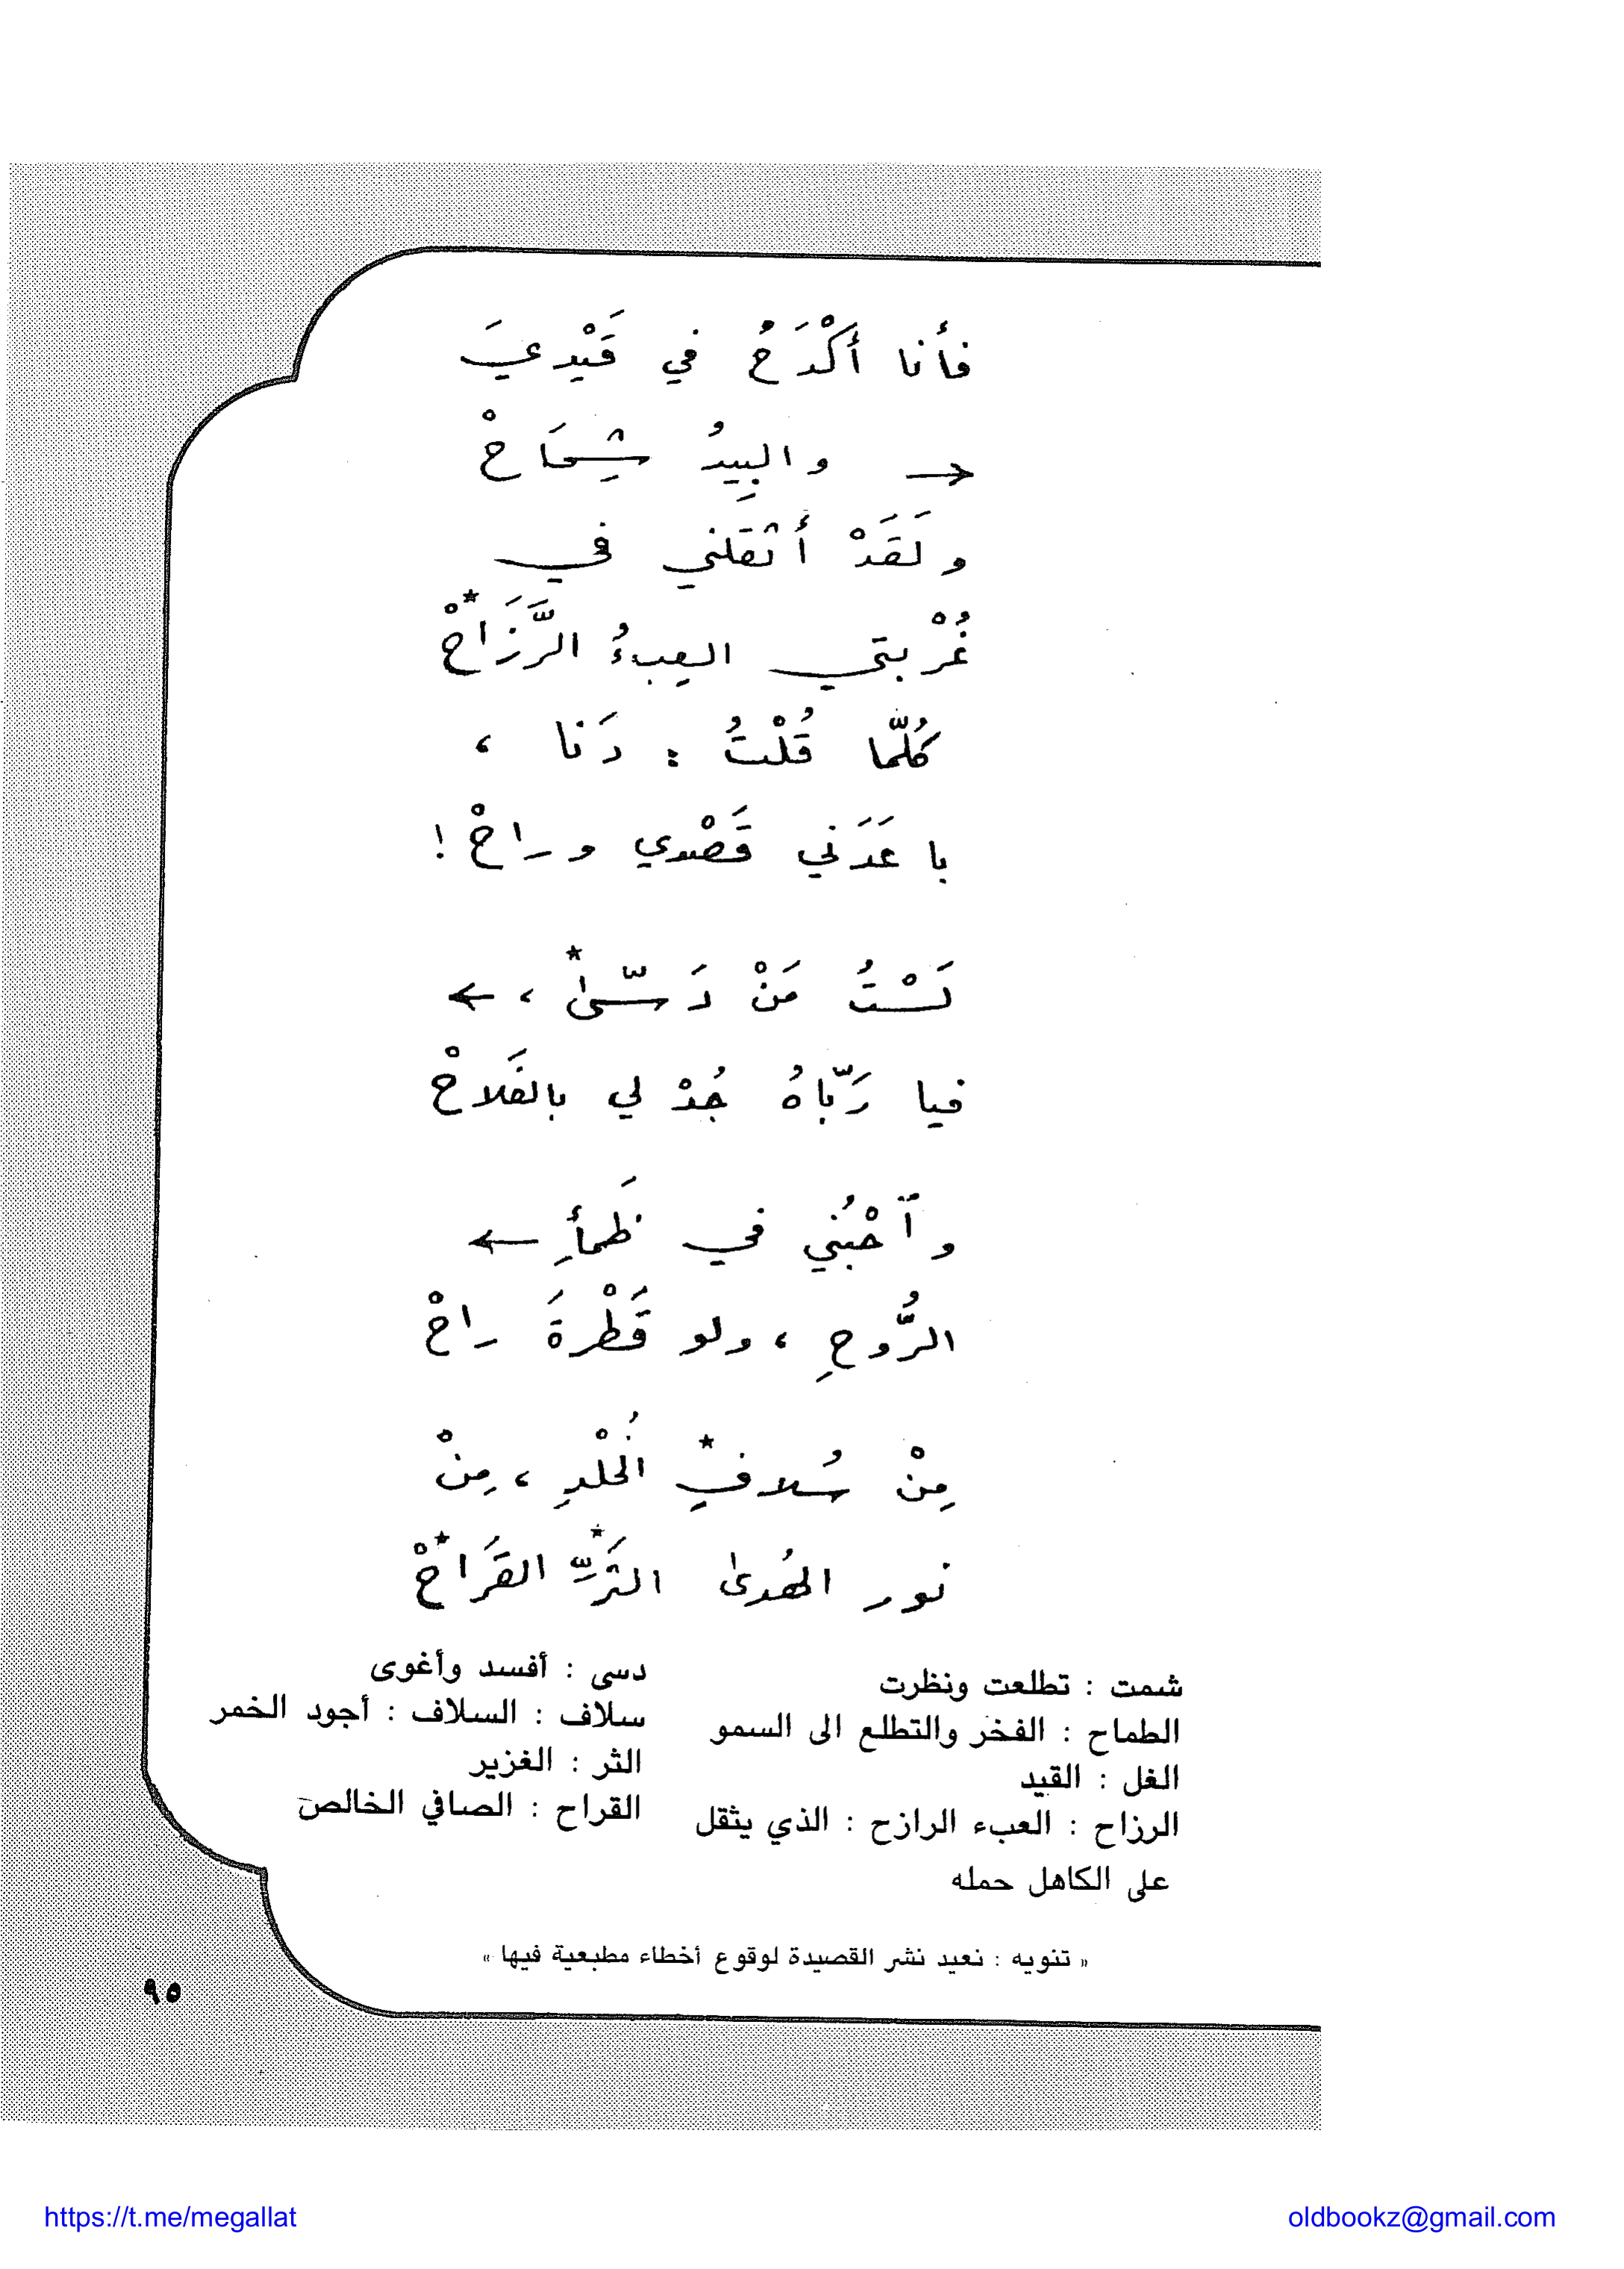 فأنا أَكْدَحُ في قَيْدِيَ
← والبِيدُ شِحَاحْ
ولَقَدْ أثقلني في
غُرْبتي العِبءُ الرَّزَاحْ*
كُلّما قُلْتُ : دَنا ،
باعَدَني قَصْدي وراحْ !
لَسْتُ مَنْ دَسّىٰ* ، ←
فيا رَبّاهُ جُدْ لي بالفَلاحْ
وٱحْبُني في ظَمأِ ←
الرُّوحِ ، ولو قَطْرةَ راحْ
مِنْ سُلافِ* الخُلْدِ ، مِنْ
نور الهُدىٰ الثَرِّ* القَرَاحْ*
شمت : تطلعت ونظرت
الطماح : الفخر والتطلع الى السمو
الغل : القيد
الرزاح : العبء الرازح : الذي يثقل
على الكاهل حمله
دسى : أفسد وأغوى
سلاف : السلاف : أجود الخمر
الثر : الغزير
القراح : الصافي الخالص
« تنويه : نعيد نشر القصيدة لوقوع أخطاء مطبعية فيها »
٩٥
https://t.me/megallat
oldbookz@gmail.com